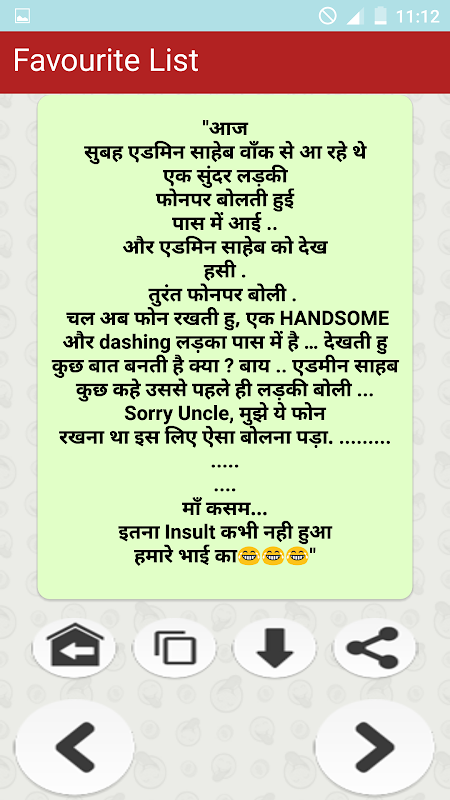 11:12
Favourite List
"आज
सुबह एडमिन साहेब वाँक से आ रहे थे
एक सुंदर लड़की
फोनपर बोलती हुई
पास में आई ..
और एडमिन साहेब को देख
हसी .
तुरंत फोनपर बोली .
चल अब फोन रखती हु, एक HANDSOME
और dashing लड़का पास में है ... देखती हु
कुछ बात बनती है क्या ? बाय .. एडमीन साहब
कुछ कहे उससे पहले ही लड़की बोली ...
Sorry Uncle, मुझे ये फोन
रखना था इस लिए ऐसा बोलना पड़ा. .........
.....
....
माँ कसम...
इतना Insult कभी नही हुआ
हमारे भाई का😂😂😂"